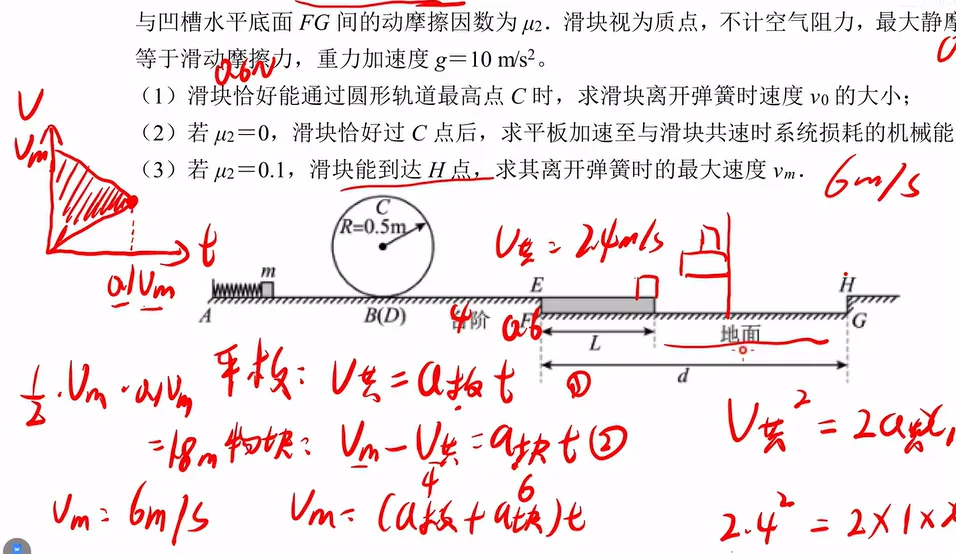 与凹槽水平底面 FG 间的动摩擦因数为 μ₂．滑块视为质点，不计空气阻力，最大静摩
等于滑动摩擦力，重力加速度 g＝10 m/s²。
0.6N
（1）滑块恰好能通过圆形轨道最高点 C 时，求滑块离开弹簧时速度 v₀ 的大小；
（2）若 μ₂＝0，滑块恰好过 C 点后，求平板加速至与滑块共速时系统损耗的机械能
（3）若 μ₂＝0.1，滑块能到达 H 点，求其离开弹簧时的最大速度 vₘ．
V
Vm
t
0.1Vm
6m/s
C
R=0.5m
V共 = 2.4m/s
m
E
H
A
B(D)
4
台阶
F
0.6
地面
G
L
d
½·Vm·0.1Vm
平板： V共 = a板 t ①
=1.8m
物块： Vm - V共 = a块 t ②
4
6
V共² = 2a共x
Vm = 6m/s
Vm = (a板 + a块)t
2.4² = 2×1×x